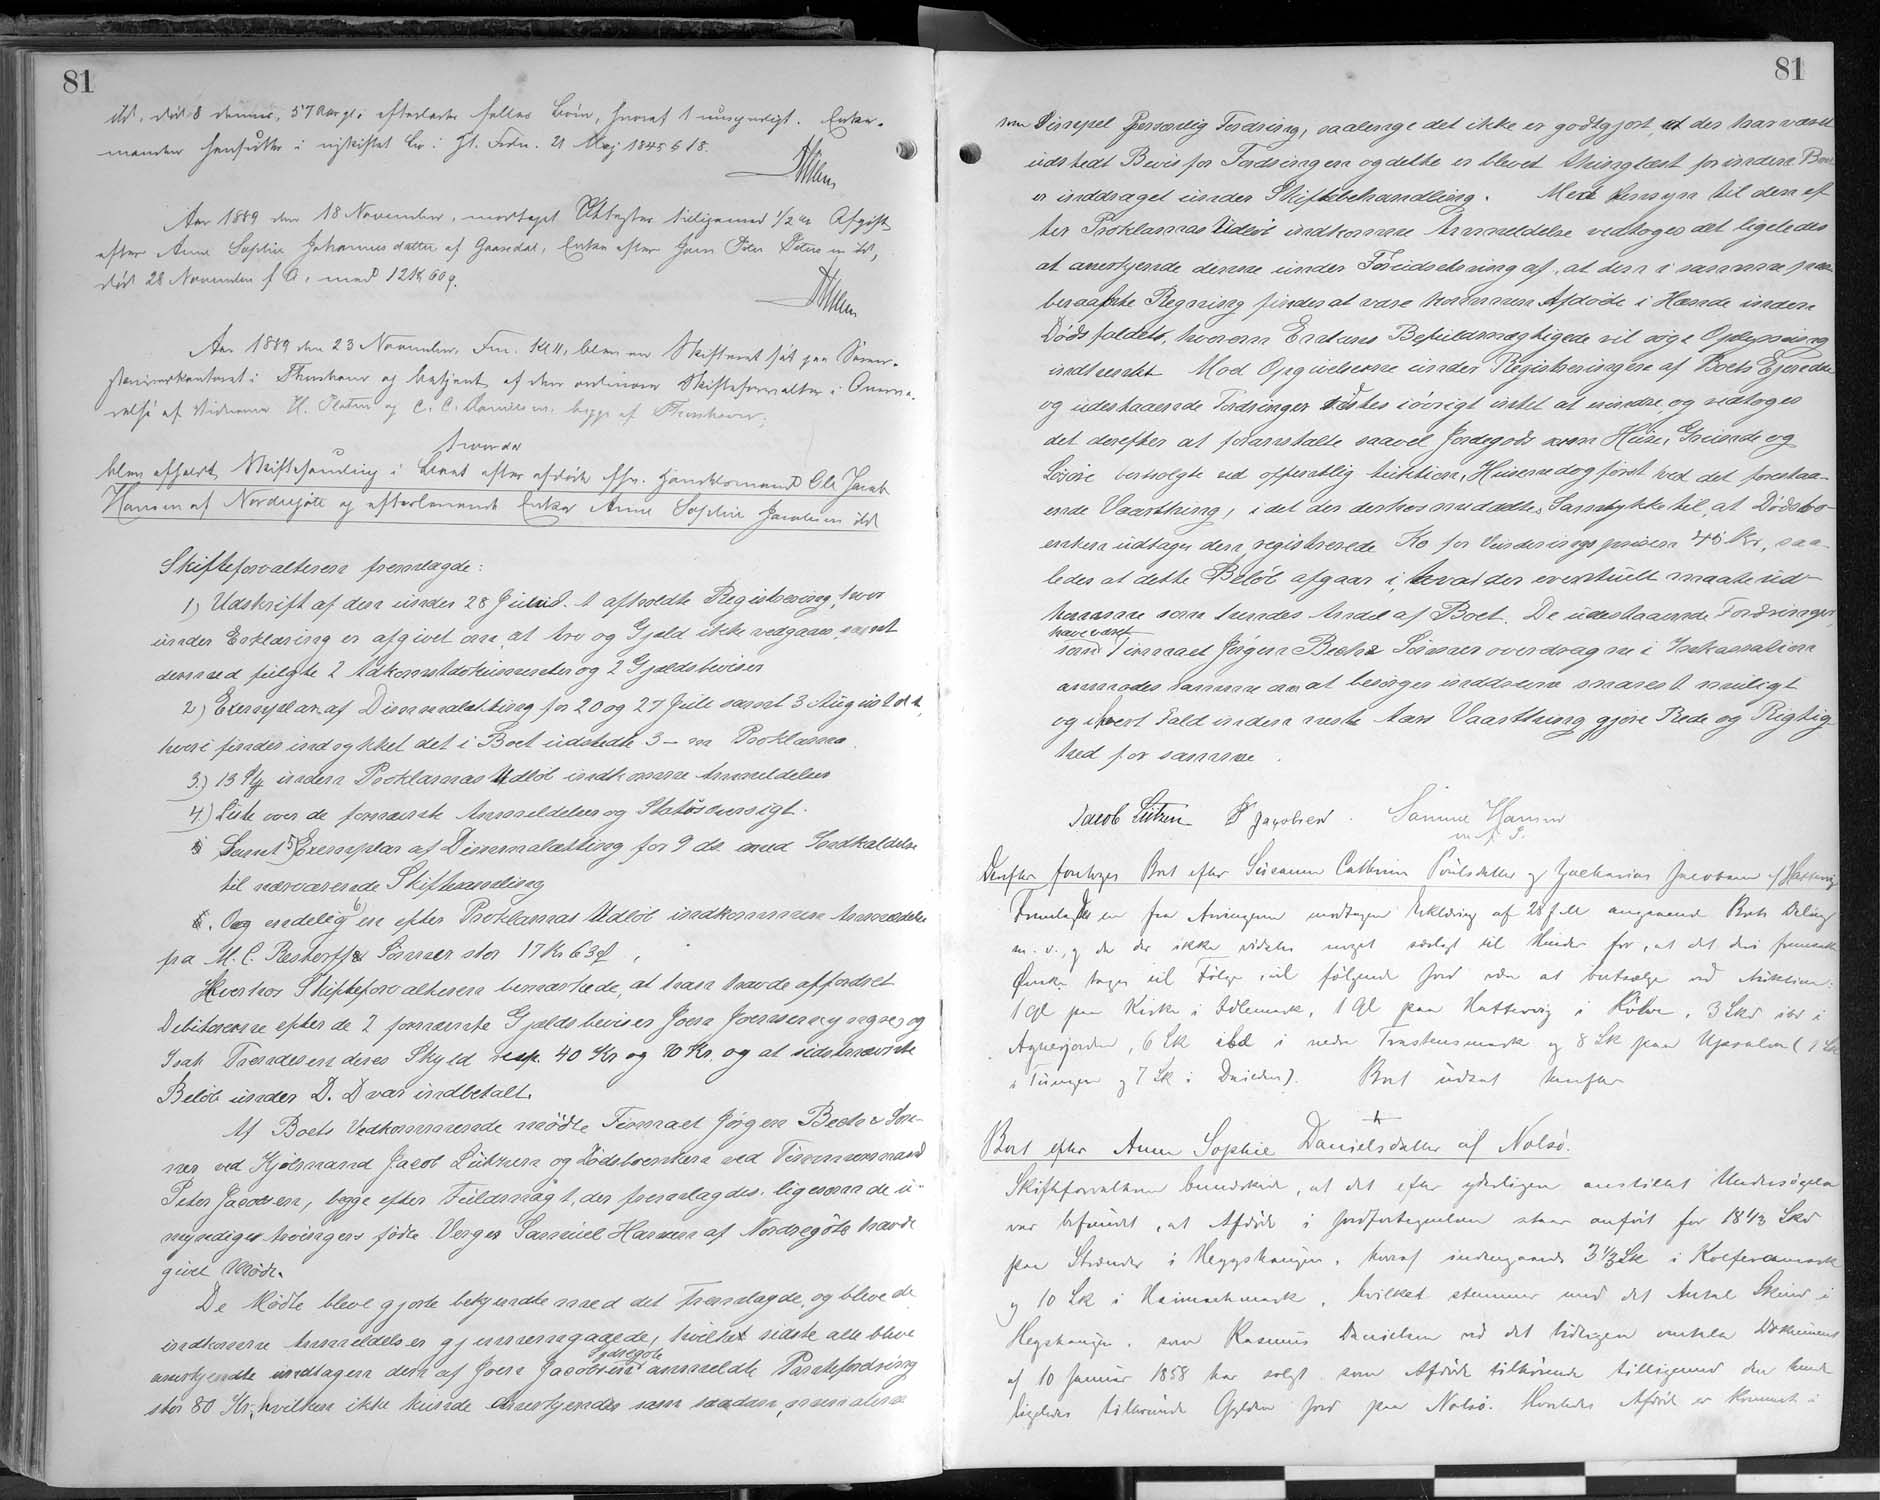 81
ibd. død 8 dennes, 57 Aar gl. efterladt fælles Børn, hvoraf 1 umyndigt. Enke-
manden hensidder i uskiftet Bo i Hl. Frdn. 21 Maj 1845 § 18.
Aar 1889 den 18 November, modtaget Attester tilligemed 1/2 % Afgift
efter Anne Sophie Johannesdatter af Gaasedal, Enke efter Joen Peter Petersen ibd,
død 28 November f. A. med 12 Kr 60 ø.
Aar 1889 den 23 November, Fm. Kl 11, blev en Skifteret sat paa Soren-
skriverkontoret i Thorshavn og betjent af den ordinære Skifteforvalter i Overvæ-
relse af Vidnerne H. Petersen og C. C. Danielsen, begge af Thorshavn;
hvorda
blev afholdt Skiftesamling i Boet efter afdøde fhv. Handelsmand Ole Jacob
Hansen af Nordregøte og efterlevende Enke Anne Sophie Jacobsen ibd
Skifteforvalteren fremlagde:
1) Udskrift af den under 28 Juni d. A afholdte Registrering, hvor
under Erklæring er afgivet om, at Arv og Gjæld ikke vedgaaes, samt
dermed fulgte 2 Adkomstdokumenter og 2 Gjældsbeviser
2) Exemplar af Dimmalætting for 20 og 27 Juli samt 3 August d A,
hvori findes indrykket det i Boet udstedte 3-m Proklama.
3.) 13 St. inden Proklamas Udløb indkomne Anmeldelser
4.) Liste over de fornævnte Anmeldelser og Statusoversigt.
Samt 5) Exemplar af Dimmalætting for 9 ds. med Indkaldelse
til nærværende Skiftesamling
6)
Og endelig en efter Proklamas Udløb indkommen Anmeldelse
fra M. C. Restorff & Sønner stor 17 Kr 63 Ø,
Hverhos Skifteforvalteren bemærkede, at han havde affordret
Debitorerne efter de 2 fornævnte Gjældsbeviser Joen Joensen og
Isak Trondesen deres Skyld resp. 40 Kr og 70 Kr. og at sidstnævnte
Beløb under D. D var indbetalt.
Af Boets Vedkommende mødte Firmaet Jørgen Bech & Søn-
ner ved Kjøbmand Jacob Lützen og Dødsboenken ved Tømmermand
Peter Jacobsen, begge efter Fuldmagt, der fremlagdes. ligesom de u-
myndige Arvingers fødte Verger Samuel Hansen af Nordregøte havde
givet Møde.
De Mødte bleve gjorte bekjendte med det Fremlagde, og bleve de
indkomne Anmeldelser gjennemgaaede, hvilket sidste alle bleve
Sydregøte
anerkjendte undtagen den af Joen Jacobsen anmeldte Pantefordring
stor 80 Kr, hvilken ikke kunde Anerkjendes som saadan, men alene
81
som Simpel personlig Fordring, saalænge det ikke er godtgjort, at der har været
udstedt Bevis for Fordringen og dette er blevet thinglæst forinden Boet
er inddraget under Skiftebehandling. Med Hensyn til den ef
ter Proklamas Udløb indkomne Anmeldelse vedtoges det ligeledes
at anerkjende denne under Forudsætning af, at den i samme paa
beraabte Regning findes at være kommen Afdøde i Hænde inden
Dødsfaldet, hvorom Enkens Befuldmægtigede vil søge Oplysning
indhentet. Mod Opgivelserne under Registreringen af Boets Ejendele
og udestaaende Fordringer vidstes iøvrigt intet at erindre, og vedtoges
det derefter at foranstalte saavel Jordegods som Huse, Grunde og
Løsøre bortsolgte ved offentlig Auktion, Husene dog først ved det forestaa-
ende Vaarthing, i det der derhos meddeltes Samtykke til, at Dødsbo-
enken udtager den registrerede Ko for Vurderingsprisen 45 Kr., saa-
ledes at dette Beløb afgaar i, hvad der eventuelt maatte ud-
komme som hendes Andel af Boet. De udestaaende Fordringer,
have været
som Firmaet Jørgen Bechs Sønner overdragne i Inkassation
anmodes samme om at besørges inddrevne snarest muligt
og i hvert Fald inden næste Aars Vaarthing gjøre Rede og Rigtig
hed for samme.
Jacob Lützen P Jacobsen. Samuel Hansen
m. f. P.
Derefter foretoges Boet efter Susanne Cathrine Poulsdatter og Zacharias Jacobsen af Hattervig
Fremlagdes en fra Arvingerne modtagen Erklæring af 28 f. M. angaaende Boets Deling
m. v., og da der ikke vidstes noget særligt til Hinder for, at det deri fremsatte
Ønske tages til Følge, vil følgende Jord være at bortsælge ved Auktion:
1 Gl paa Kirke i Ødemark, 1 Gl paa Hattervig i 3 Skd ibd i
6 Sk ibd i nedre og 8 Sk paa Upsalen (1 Sk
i Tungen og 7 Sk i Dalen). Boet udsat herefter
Boet efter Anne Sophie Danielsdatter af Nolsø.
Skifteforvalteren bemærkede, at det efter yderligere anstillet Undersøgelse
var befundet, at Afdøde i Jordfortegnelsen staar anført for 18 1/3 Skd
paa Strender i Heggshaugen, hvoraf indengaards 3 1/3 Sk i
og 10 Sk i hvilket stemmer med det Antal Skind i
Heggshaugen, som Rasmus Danielsen ved det tidligere omtalte Dokument
af 10 Januar 1858 har solgt som Afdøde tilhørende tilligemed den hende
ligeledes tilhørende Gylden Jord paa Nolsø. Hvorledes Afdøde er kommet i